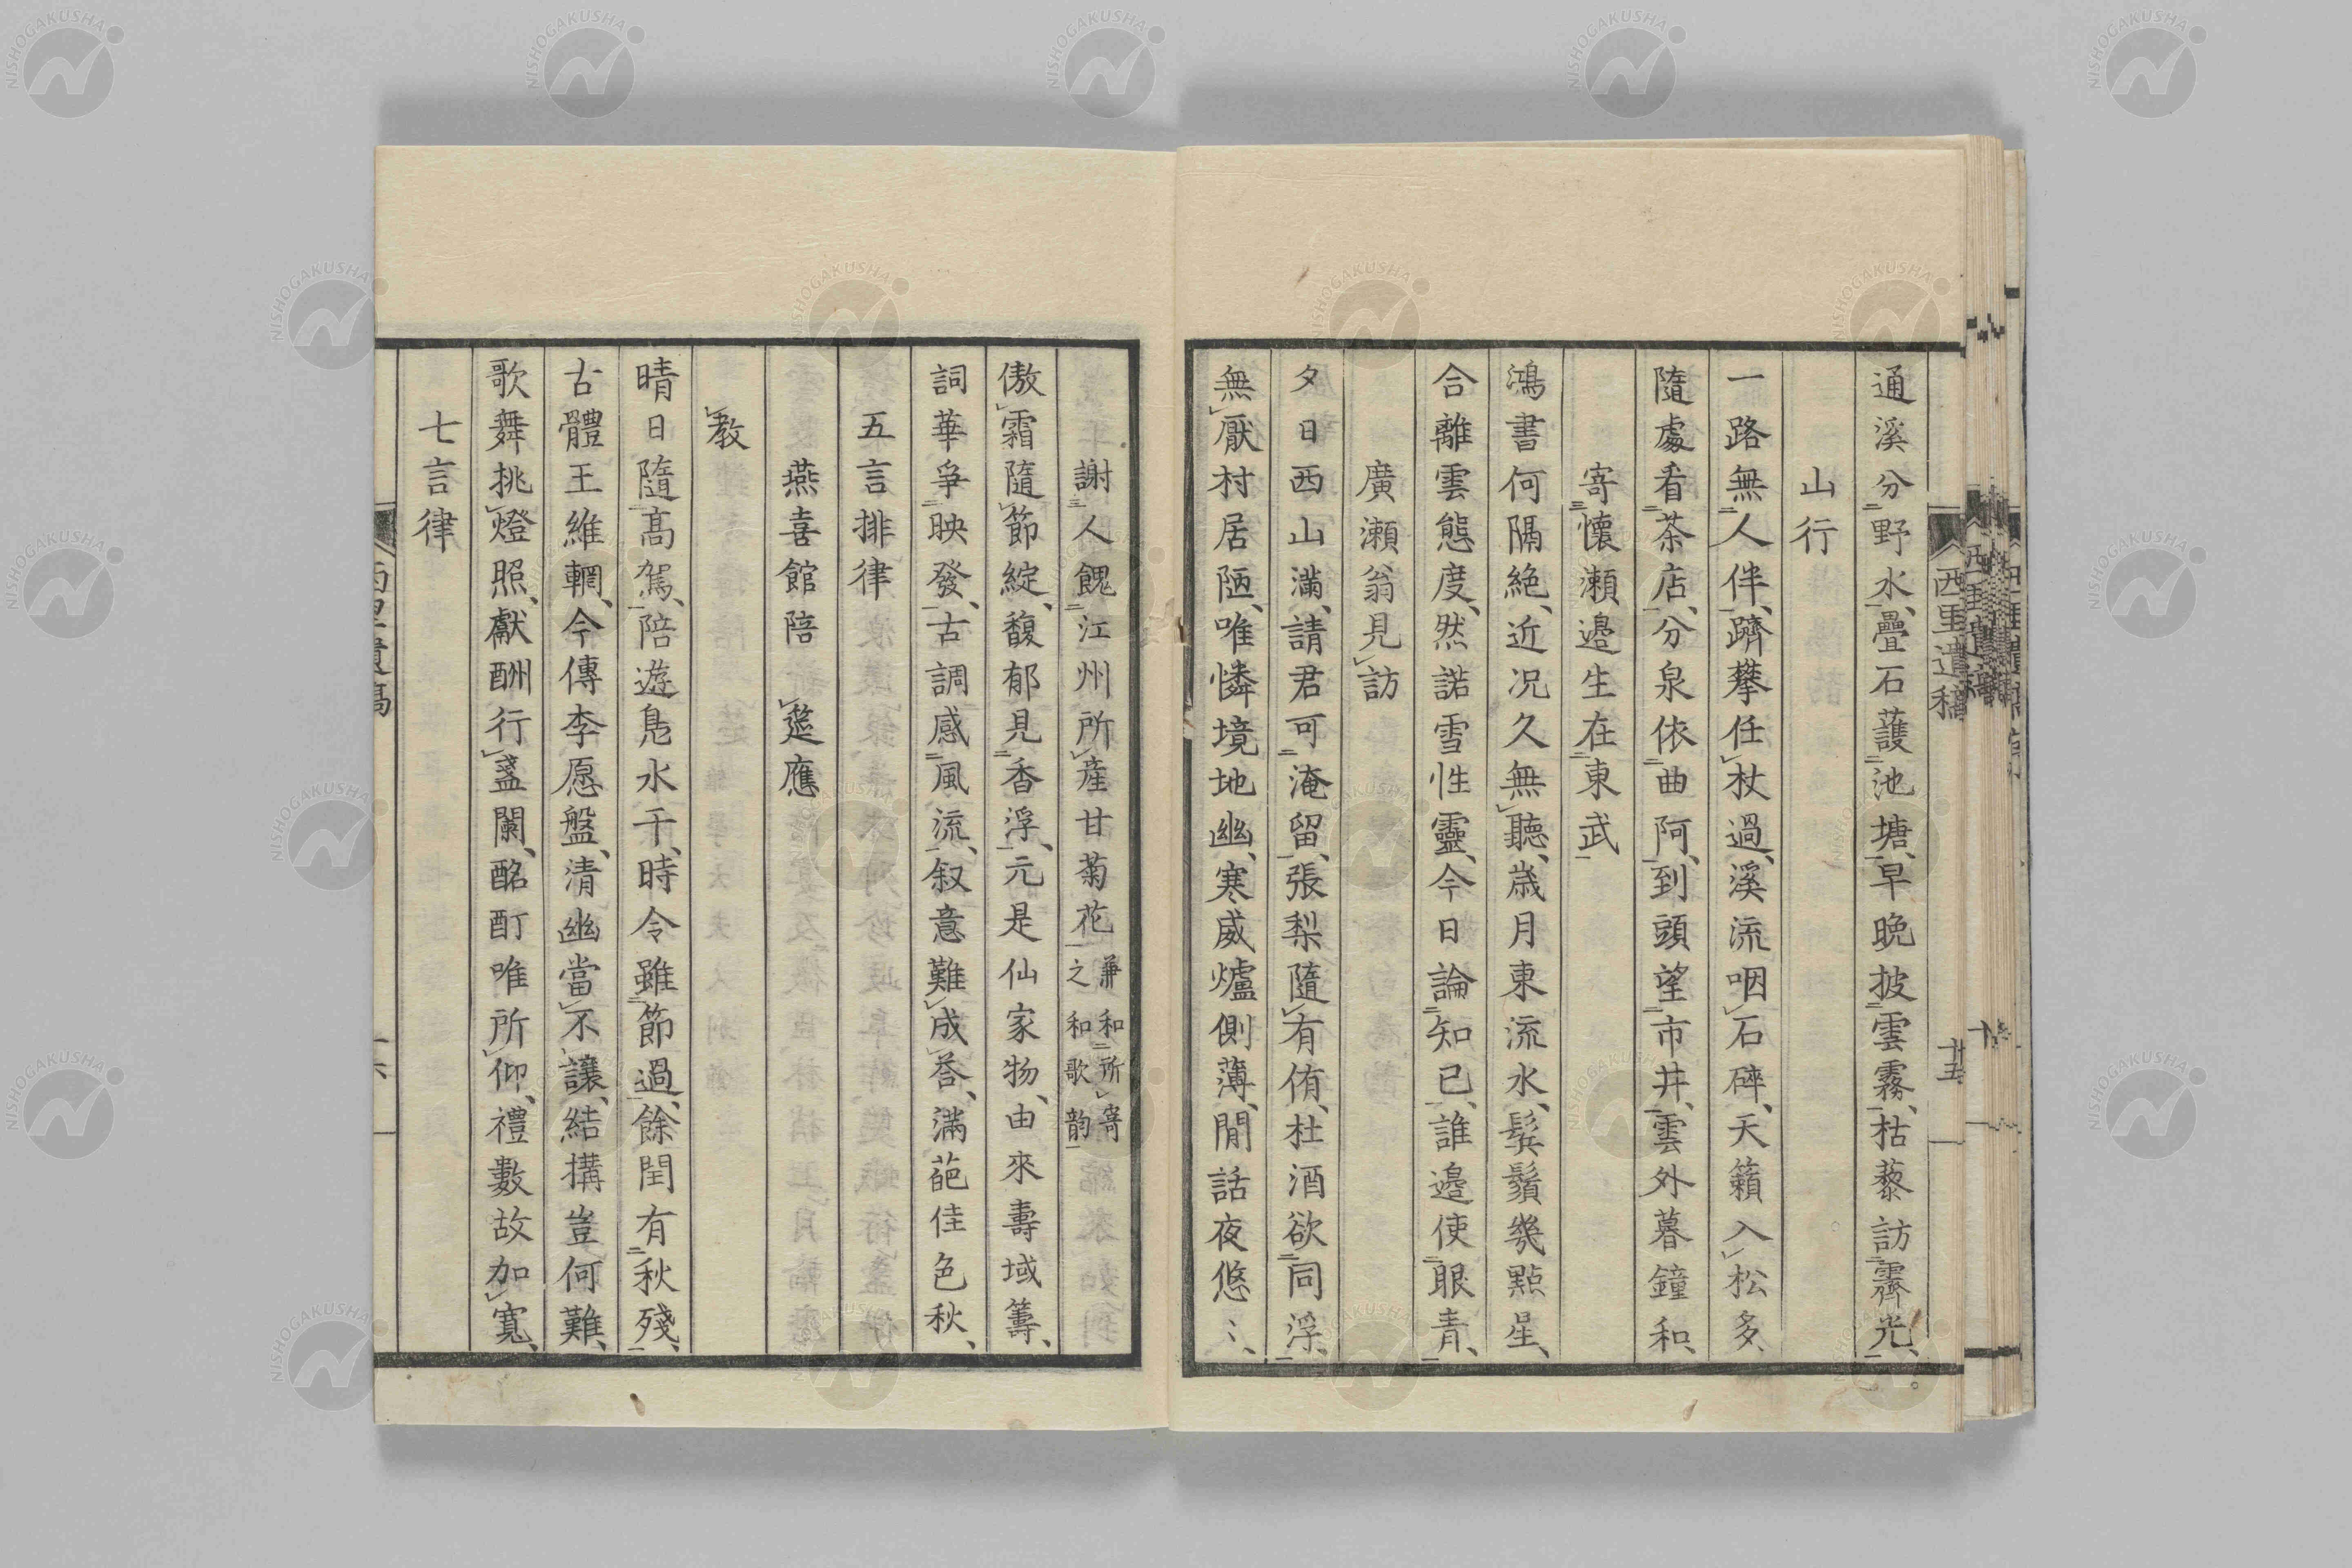 通溪分野水、疊石護池塘、早晩披雲霧、枯藜訪霽光、
山行
一路無人伴、躋攀任杖過、溪流咽石碎、天籟入松多、
隨處看茶店、分泉依曲阿、到頭望市井、雲外暮鐘和、
寄懷瀬邉生在東武
鴻書何隔絶、近况久無聽、歳月東流水、鬂鬚幾點星、
合離雲態度、然諾雪性靈、今日論知己、誰邉使眼青、
廣瀬翁見訪
夕日西山滿、請君可淹留、張梨隨有侑、杜酒欲同浮、
無厭村居陋、唯憐境地幽、寒威爐側薄、閒話夜悠〻、
西里遺稿
十五
謝人餽江州所産甘菊花兼和所寄之和歌韵
傲霜隨節綻、馥郁見香浮、元是仙家物、由來壽域籌、
詞華爭映發、古調感風流、叙意難成荅、滿葩佳色秋、
五言排律
燕喜館陪 筵應
教
晴日隨髙駕、陪遊凫水干、時令雖節過、餘閏有秋殘、
古體王維輞、今傳李愿盤、清幽當不讓、結搆豈何難、
歌舞挑燈照、獻酬行盞闌、酩酊唯所仰、禮數故加寛、
七言律
西里遺稿